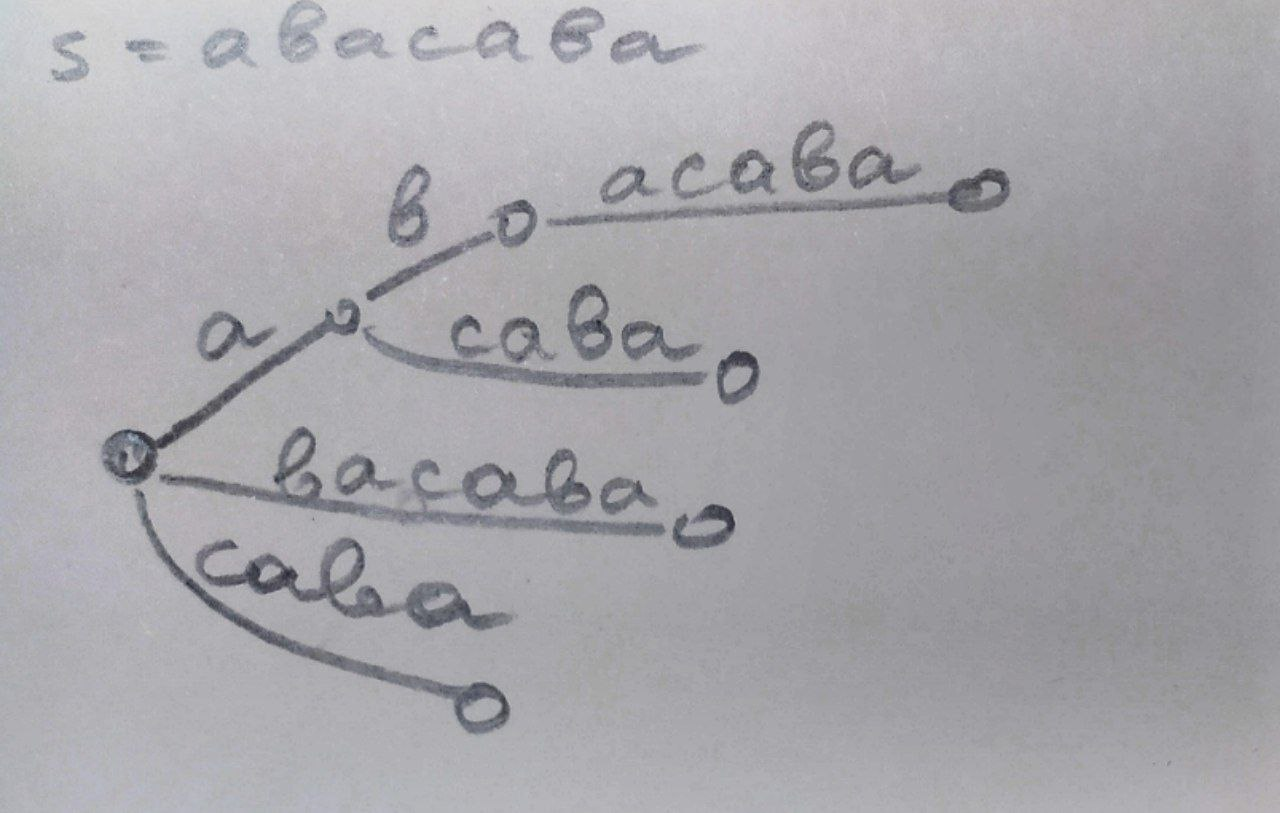 s = abacaba
b acaba
a caba
bacaba
caba